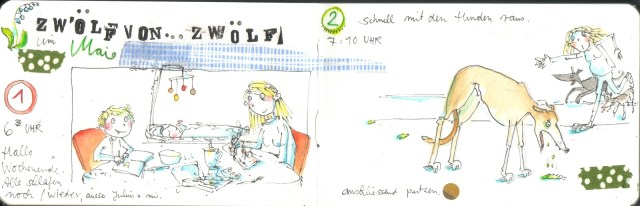 ZWÖLF VON... ZWÖLF
im Mai
1
6 UHR
Hallo
Wochenende.
Alle schlafen
noch / wieder, ausser Julius + mir.
2
schnell mit den Hunden raus.
7:10 UHR
anschliessend putzen.